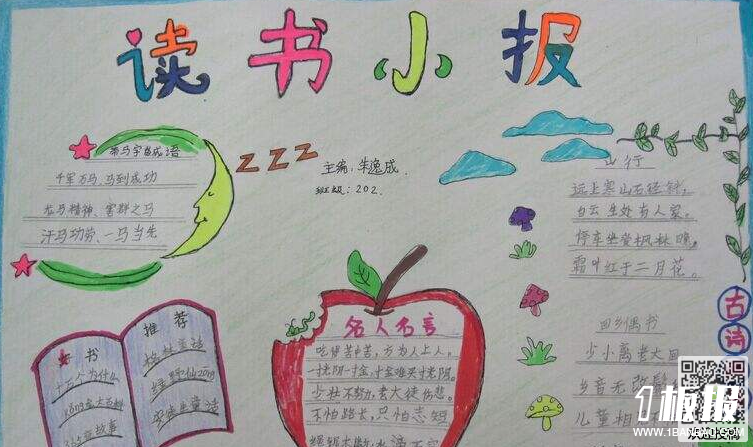 读书小报
带马字的成语
千军万马、马到成功
龙马精神、害群之马
汗马功劳、一马当先
zzz
主编:朱逸成
班级:202.
山行
远上寒山石径斜,
白云生处有人家。
停车坐爱枫林晚,
霜叶红于二月花。
古诗
回乡偶书
少小离老大回
乡音无改鬓
儿童相
名人名言
吃得苦中苦,方为人上人。
一寸光阴一寸金,寸金难买寸光阴。
少壮不努力,老大徒伤悲。
不怕路长,只怕志短
推荐
书
十万个为什么
格林童话
绿野仙
故事
安徒生童话
1板报
WWW.1BANBAO.COM